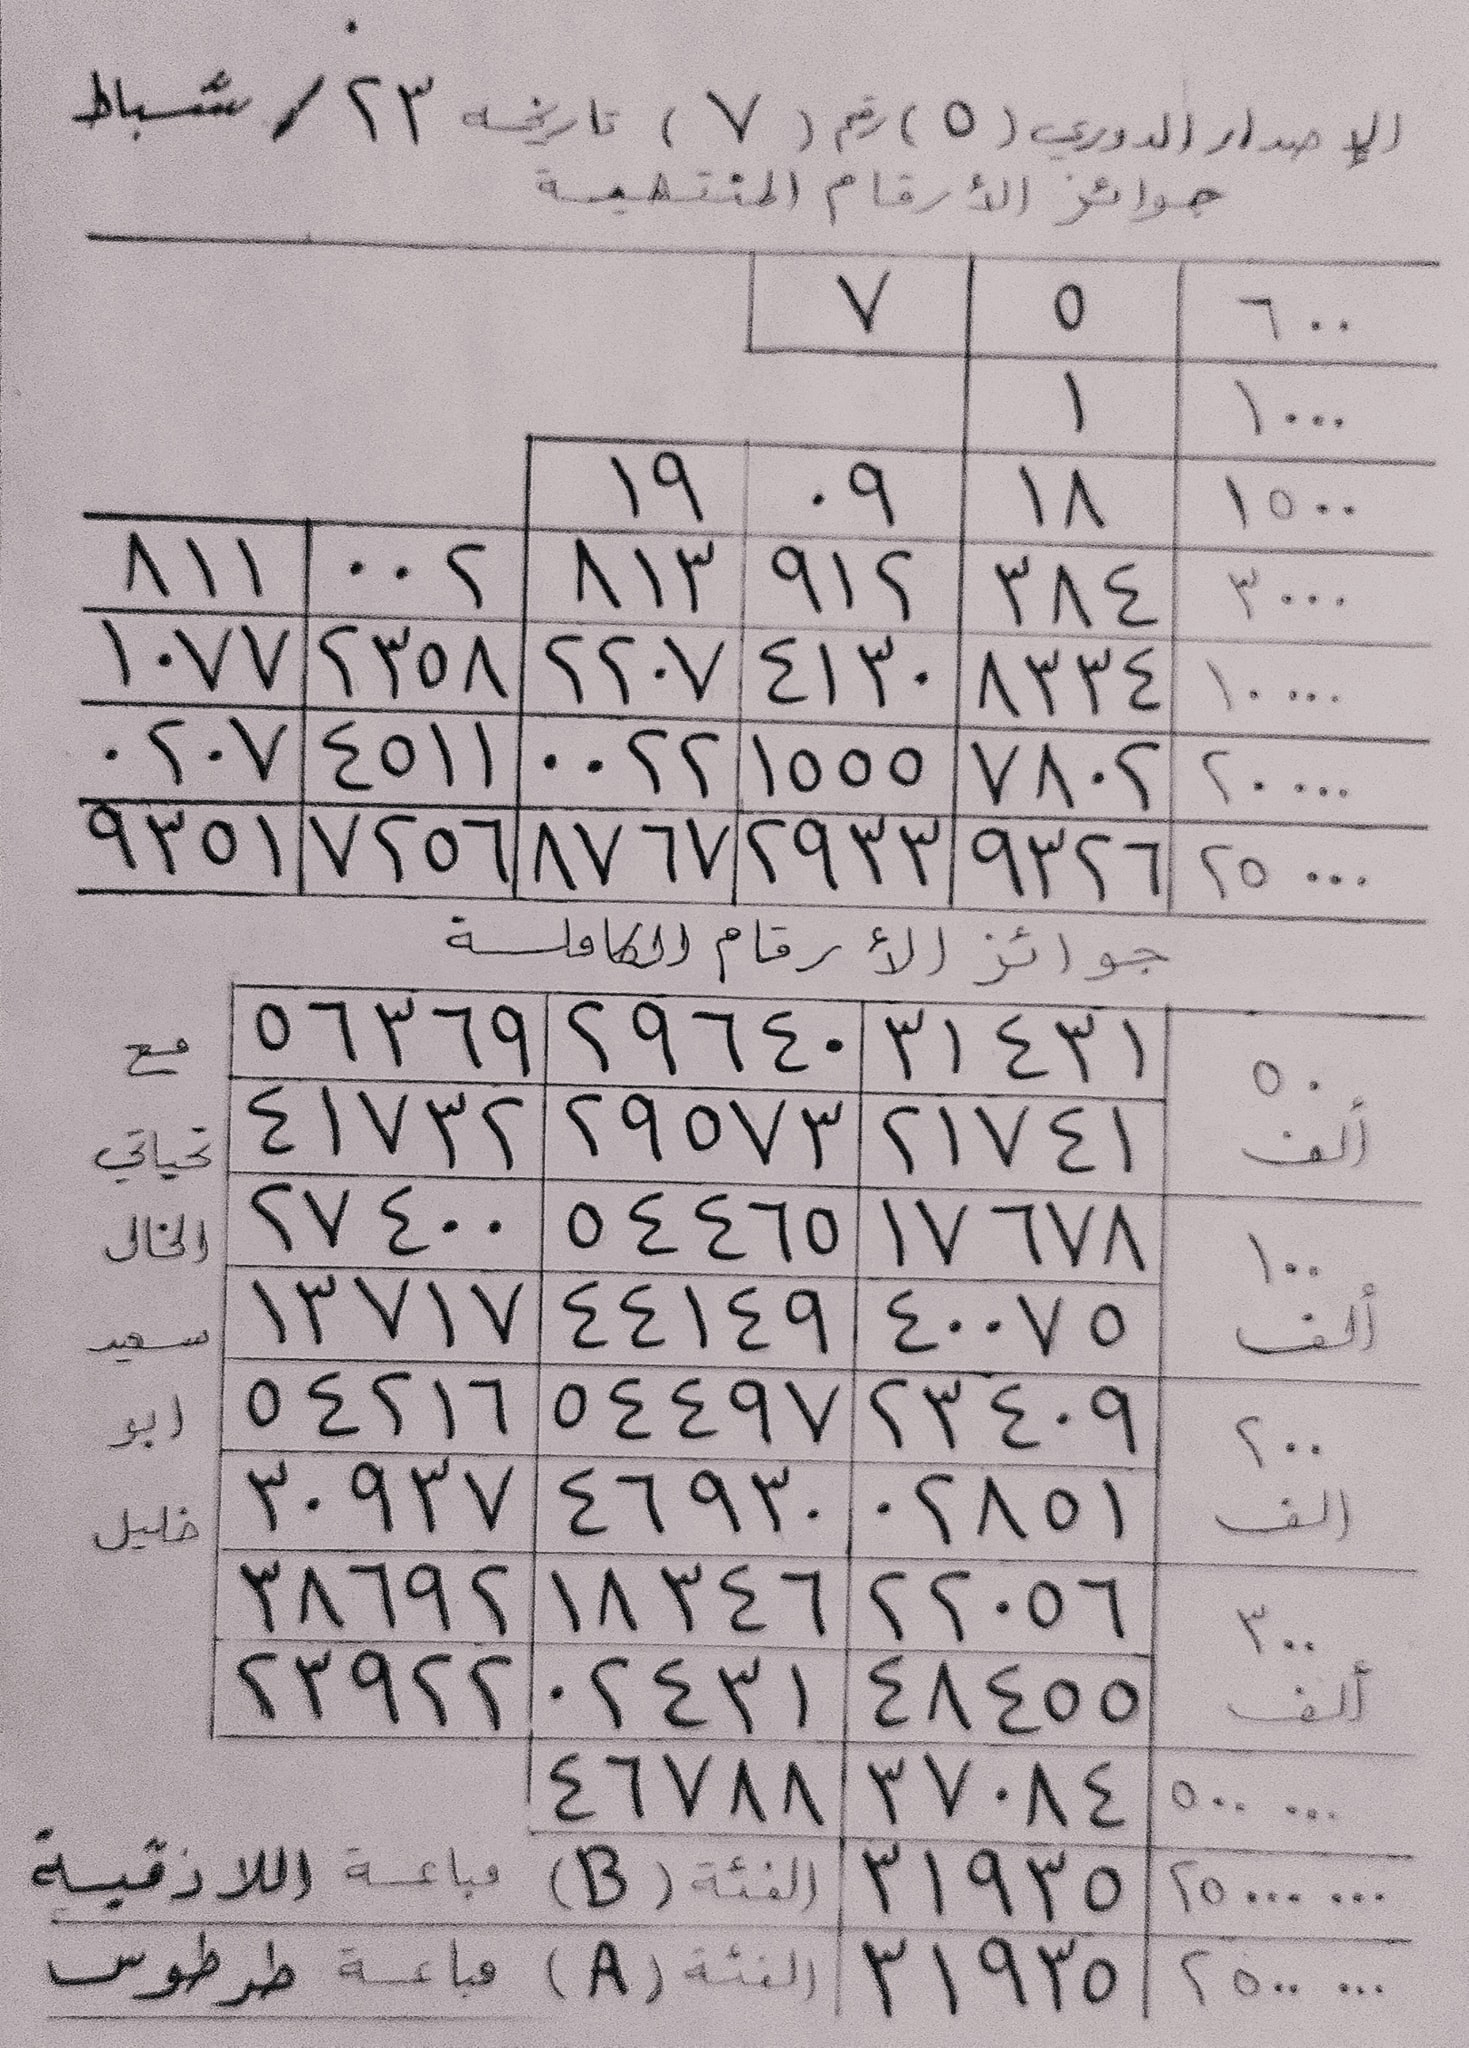 الإصدار الدوري (٥) رقم (٧) تاريخه ٢٣ / شباط
جوائز الأرقام المنتهية
٦٠٠ ٥ ٧
١٠٠٠ ١
١٥٠٠ ١٨ ٠٩ ١٩
٣٠٠٠ ٣٨٤ ٩١٢ ٨١٣ ٠٠٢ ٨١١
١٠٠٠٠ ٨٣٣٤ ٤١٣٠ ٢٢٠٧ ٢٣٥٨ ١٠٧٧
٢٠٠٠٠ ٧٨٠٢ ١٥٥٥ ٠٠٢٢ ٤٥١١ ٠٢٠٧
٢٥٠٠٠ ٩٣٢٦ ٢٩٣٣ ٨٧٦٧ ٧٢٥٦ ٩٣٥١
جوائز الأرقام الكاملة
٥٠ ألف ٣١٤٣١ ٢٩٦٤٠ ٥٦٣٦٩ مع
٢١٧٤١ ٢٩٥٧٣ ٤١٧٣٢ تحياتي
١٠٠ ألف ١٧٦٧٨ ٥٤٤٦٥ ٢٧٤٠٠ الخال
٤٠٠٧٥ ٤٤١٤٩ ١٣٧١٧ سعيد
٢٠٠ الف ٢٣٤٠٩ ٥٤٤٩٧ ٥٤٢١٦ ابو
٠٢٨٥١ ٤٦٩٣٠ ٣٠٩٣٧ خليل
٣٠٠ ألف ٢٢٠٥٦ ١٨٣٤٦ ٣٨٦٩٢
٤٨٤٥٥ ٠٢٤٣١ ٢٣٩٢٢
٥٠٠٠٠٠ ٣٧٠٨٤ ٤٦٧٨٨
٢٥٠٠٠٠٠٠ ٣١٩٣٥ الفئة (B) مباعة اللاذقية
٢٥٠٠٠٠٠ ٣١٩٣٥ الفئة (A) مباعة طرطوس